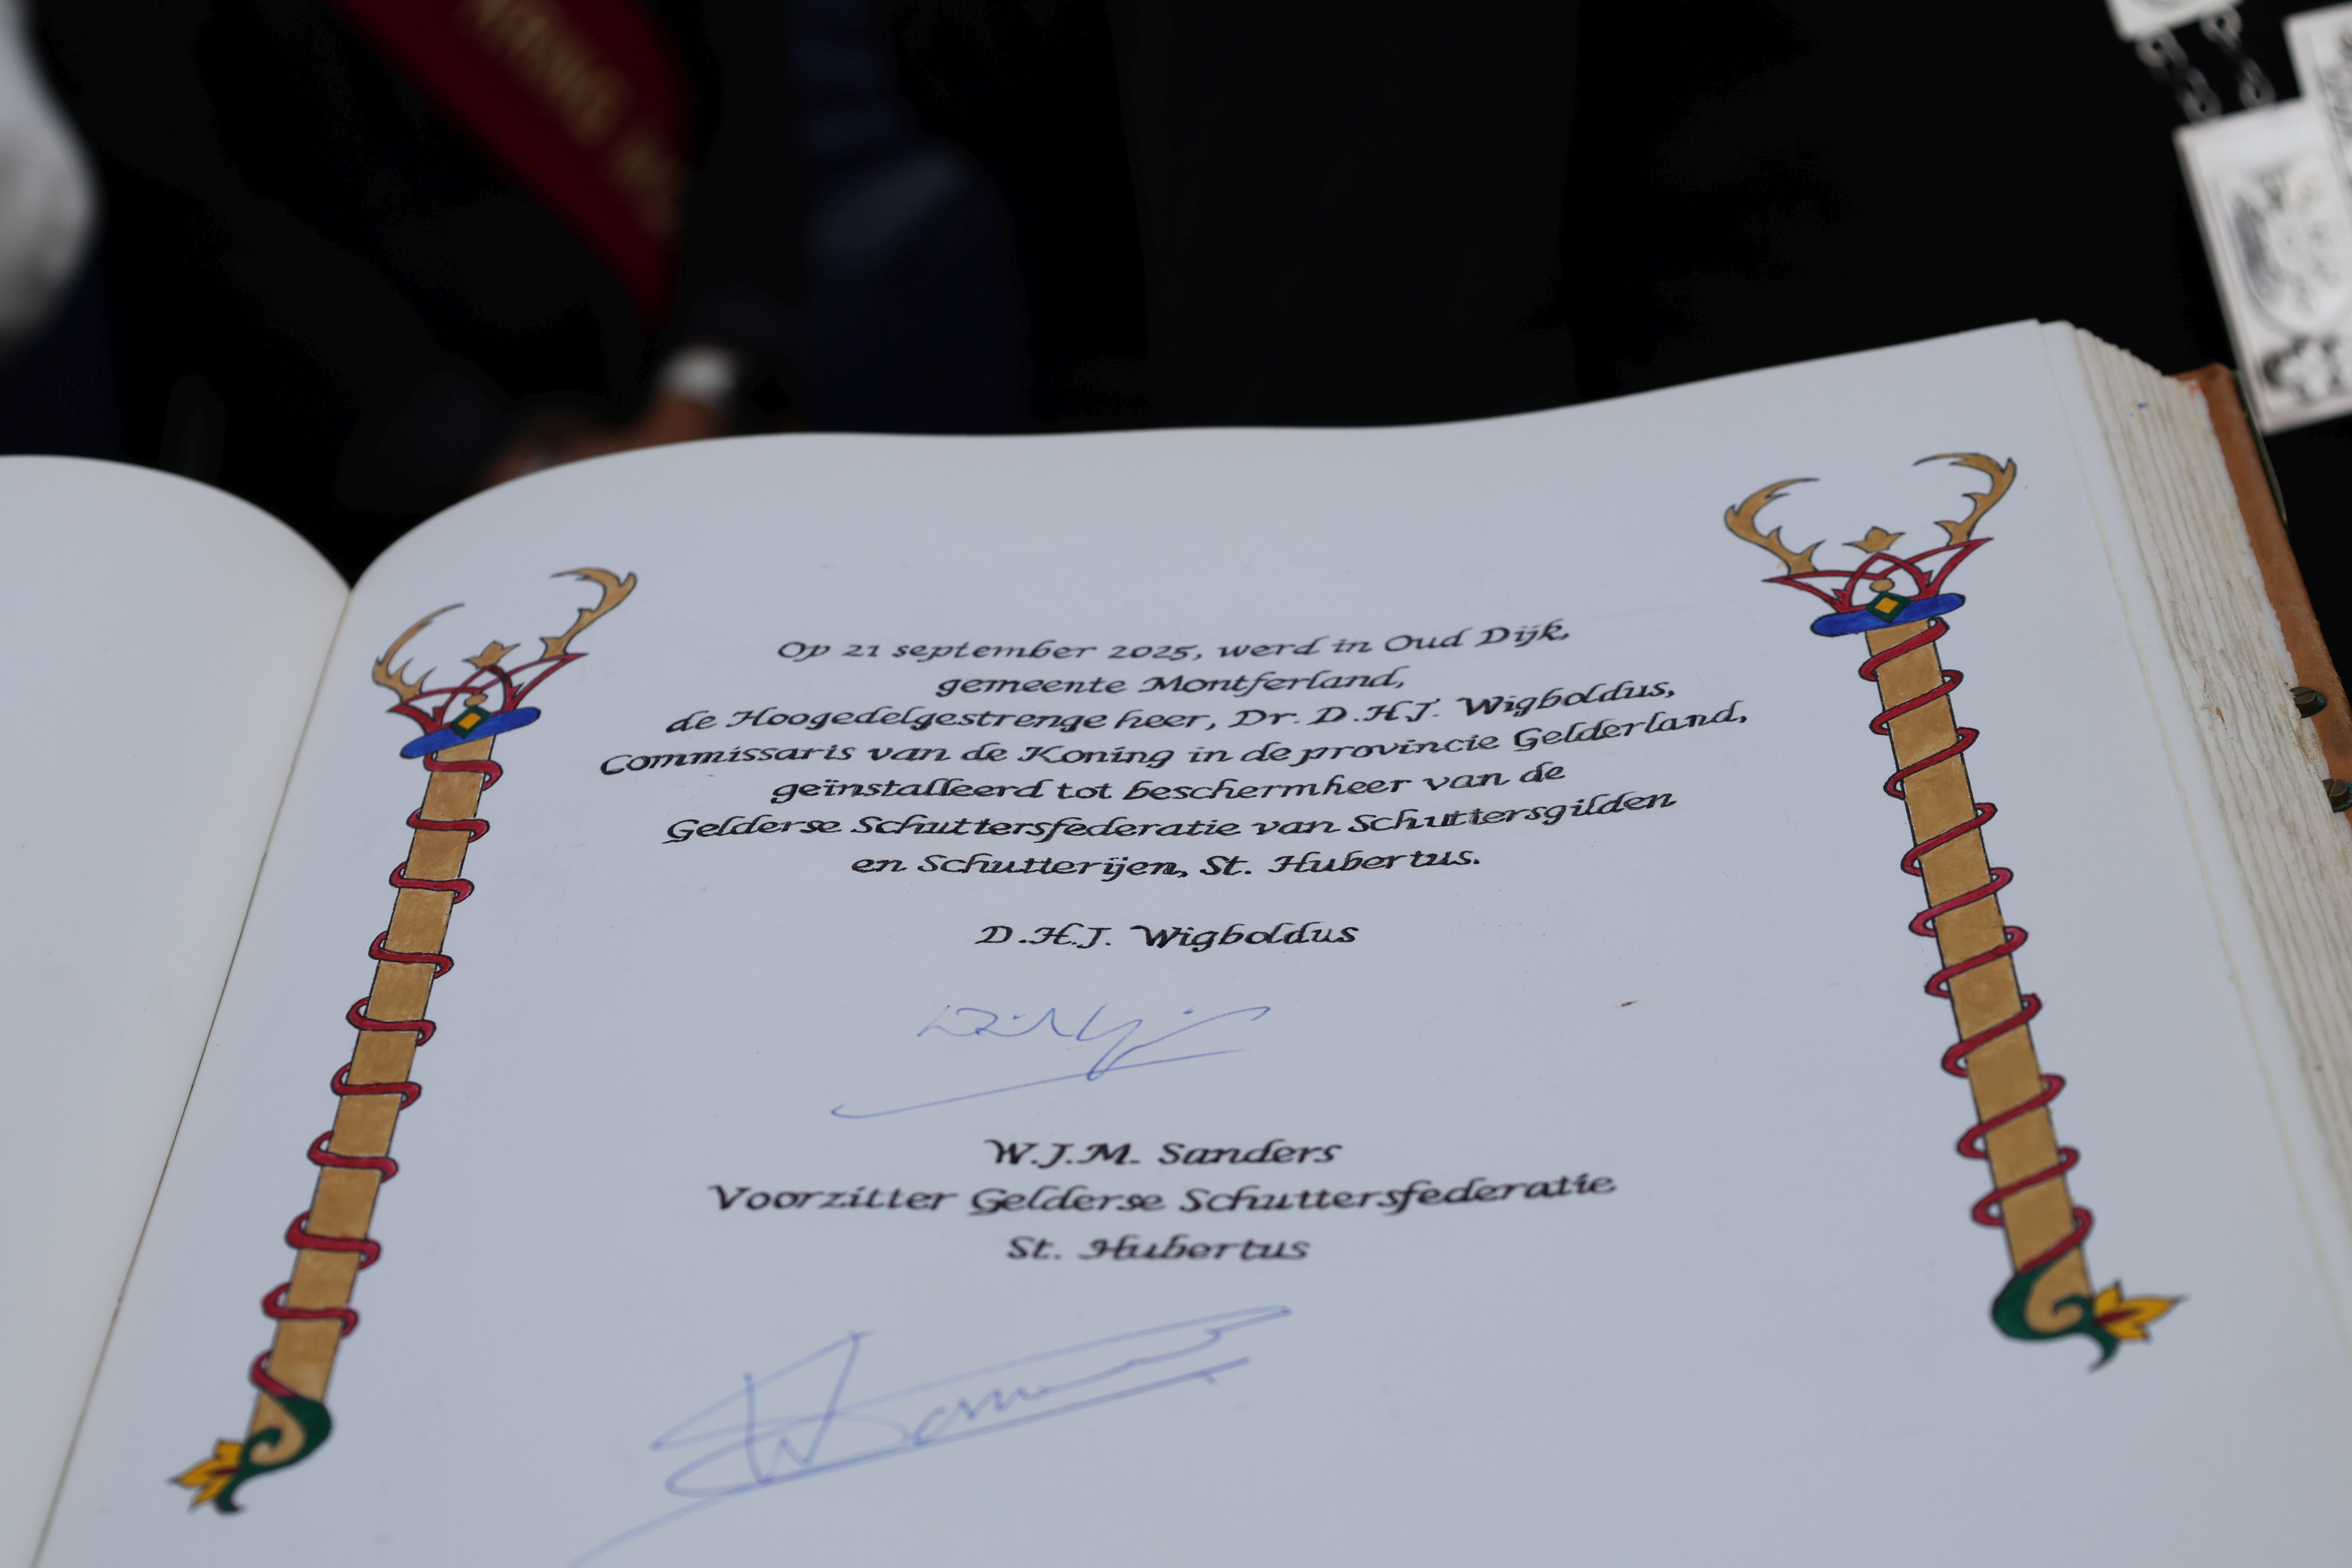 Op 21 september 2025, werd in Oud Dijk,
gemeente Montferland,
de Hoogedelgestrenge heer, Dr. D.H.J. Wigboldus,
Commissaris van de Koning in de provincie Gelderland,
geïnstalleerd tot beschermheer van de
Gelderse Schuttersfederatie van Schuttersgilden
en Schutterijen, St. Hubertus.
D.H.J. Wigboldus
W.J.M. Sanders
Voorzitter Gelderse Schuttersfederatie
St. Hubertus